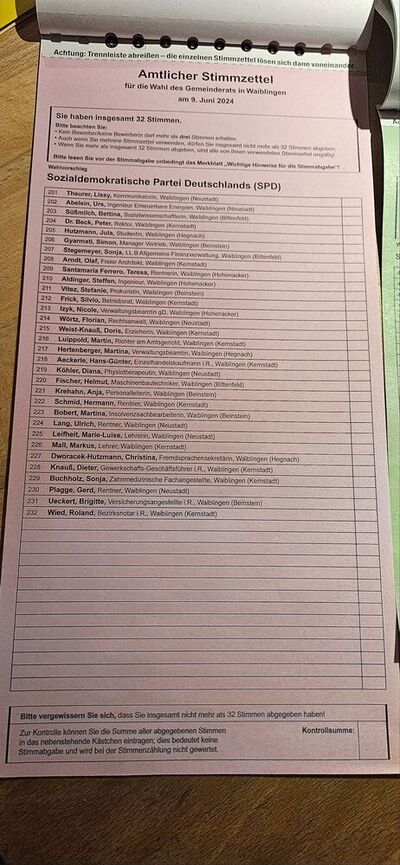 Achtung: Trennleiste abreißen – die einzelnen Stimmzettel lösen sich dann voneinander.
Amtlicher Stimmzettel
für die Wahl des Gemeinderats in Waiblingen
am 9. Juni 2024
Sie haben insgesamt 32 Stimmen.
Bitte beachten Sie:
• Kein Bewerber/keine Bewerberin darf mehr als drei Stimmen erhalten.
• Auch wenn Sie mehrere Stimmzettel verwenden, dürfen Sie insgesamt nicht mehr als 32 Stimmen abgeben.
• Wenn Sie mehr als insgesamt 32 Stimmen abgeben, sind alle von Ihnen verwendeten Stimmzettel ungültig!
Bitte lesen Sie vor der Stimmabgabe unbedingt das Merkblatt „Wichtige Hinweise für die Stimmabgabe“!
Wahlvorschlag
Sozialdemokratische Partei Deutschlands (SPD)
201 Theurer, Lissy, Kommunikatorin, Waiblingen (Neustadt)
202 Abelein, Urs, Ingenieur Erneuerbare Energien, Waiblingen (Neustadt)
203 Süßmilch, Bettina, Sozialwissenschaftlerin, Waiblingen (Bittenfeld)
204 Dr. Beck, Peter, Rektor, Waiblingen (Kernstadt)
205 Hutzmann, Jula, Studentin, Waiblingen (Hegnach)
206 Gyarmati, Simon, Manager Vertrieb, Waiblingen (Beinstein)
207 Stegemeyer, Sonja, LL.B Allgemeine Finanzverwaltung, Waiblingen (Bittenfeld)
208 Arndt, Olaf, Freier Architekt, Waiblingen (Kernstadt)
209 Santamaria Ferrero, Teresa, Rentnerin, Waiblingen (Hohenacker)
210 Aldinger, Steffen, Ingenieur, Waiblingen (Hohenacker)
211 Vitez, Stefanie, Prokuristin, Waiblingen (Beinstein)
212 Frick, Silvio, Betriebsrat, Waiblingen (Kernstadt)
213 Izyk, Nicole, Verwaltungsbeamtin gD, Waiblingen (Hohenacker)
214 Wörtz, Florian, Rechtsanwalt, Waiblingen (Neustadt)
215 Weist-Knauß, Doris, Erzieherin, Waiblingen (Kernstadt)
216 Luippold, Martin, Richter am Amtsgericht, Waiblingen (Kernstadt)
217 Hertenberger, Martina, Verwaltungsbeamtin, Waiblingen (Hegnach)
218 Aeckerle, Hans-Günter, Einzelhandelskaufmann i.R., Waiblingen (Kernstadt)
219 Köhler, Diana, Physiotherapeutin, Waiblingen (Neustadt)
220 Fischer, Helmut, Maschinenbautechniker, Waiblingen (Bittenfeld)
221 Krehahn, Anja, Personalleiterin, Waiblingen (Beinstein)
222 Schmid, Hermann, Rentner, Waiblingen (Kernstadt)
223 Bobert, Martina, Insolvenzsachbearbeiterin, Waiblingen (Beinstein)
224 Lang, Ulrich, Rentner, Waiblingen (Neustadt)
225 Leifheit, Marie-Luise, Lehrerin, Waiblingen (Neustadt)
226 Mall, Markus, Lehrer, Waiblingen (Kernstadt)
227 Dworacek-Hutzmann, Christina, Fremdsprachensekretärin, Waiblingen (Hegnach)
228 Knauß, Dieter, Gewerkschafts-Geschäftsführer i.R., Waiblingen (Kernstadt)
229 Buchholz, Sonja, Zahnmedizinische Fachangestellte, Waiblingen (Kernstadt)
230 Plagge, Gerd, Rentner, Waiblingen (Neustadt)
231 Ueckert, Brigitte, Versicherungsangestellte i.R., Waiblingen (Beinstein)
232 Wied, Roland, Bezirksnotar i.R., Waiblingen (Kernstadt)
Bitte vergewissern Sie sich, dass Sie insgesamt nicht mehr als 32 Stimmen abgegeben haben!
Zur Kontrolle können Sie die Summe aller abgegebenen Stimmen
in das nebenstehende Kästchen eintragen; dies bedeutet keine
Stimmabgabe und wird bei der Stimmenzählung nicht gewertet.
Kontrollsumme: